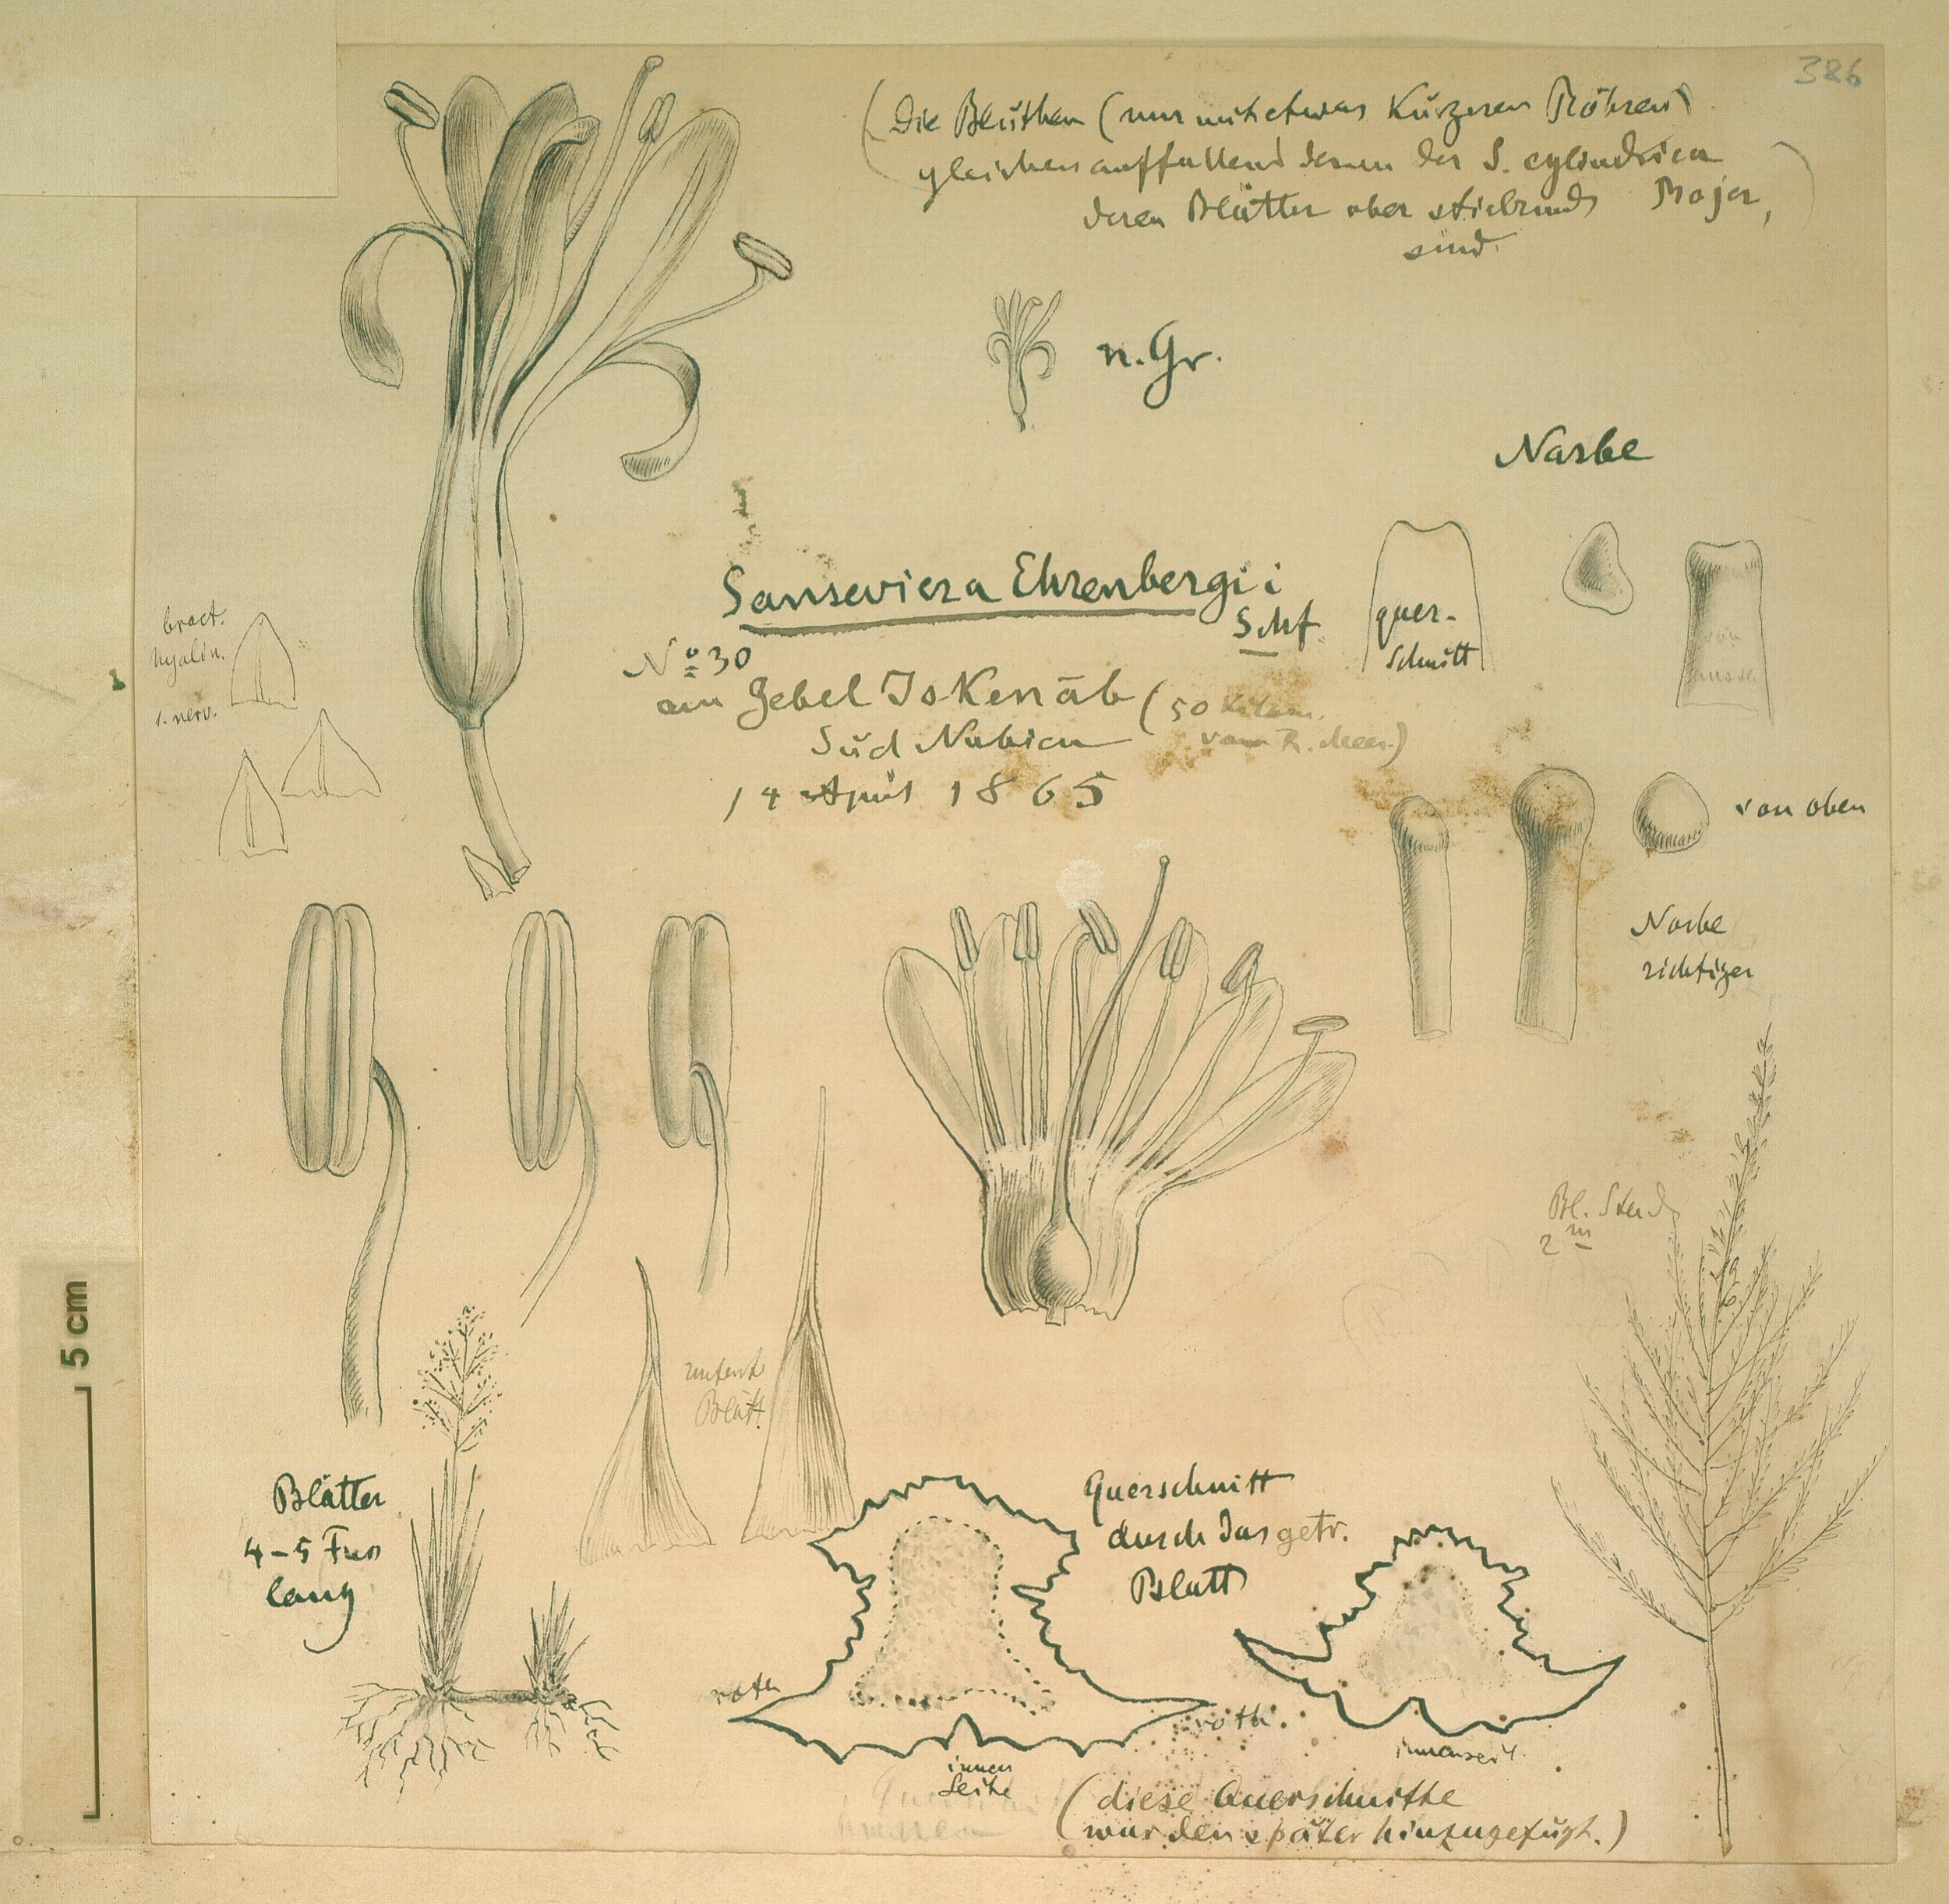 386
(Die Blüthen (nur mit etwas Kürzeren Röhren)
gleichen auffallend denen der S. cylindrica
deren Blätter aber stielrund Bojer,
sind.
n. Gr.
Narbe
Sanseviera Ehrenbergii
Schf.
quer-
schnitt
von
aussen
bract.
hyalin.
1. nerv.
No 30
am Gebel Iskenāb (50 Kilom.
Süd Nubien vom R. Meer.)
14 April 1865
von oben
Narbe
richtiger
Bl. Stand
2 m
unterst
Blätt.
Blätter
4-5 Fuss
lang
Querschnitt
durch das getr.
Blatt
roth
roth.
innen
Seite
innenseit.
(diese Querschnitte
wurden später hinzugefügt.)
5 cm